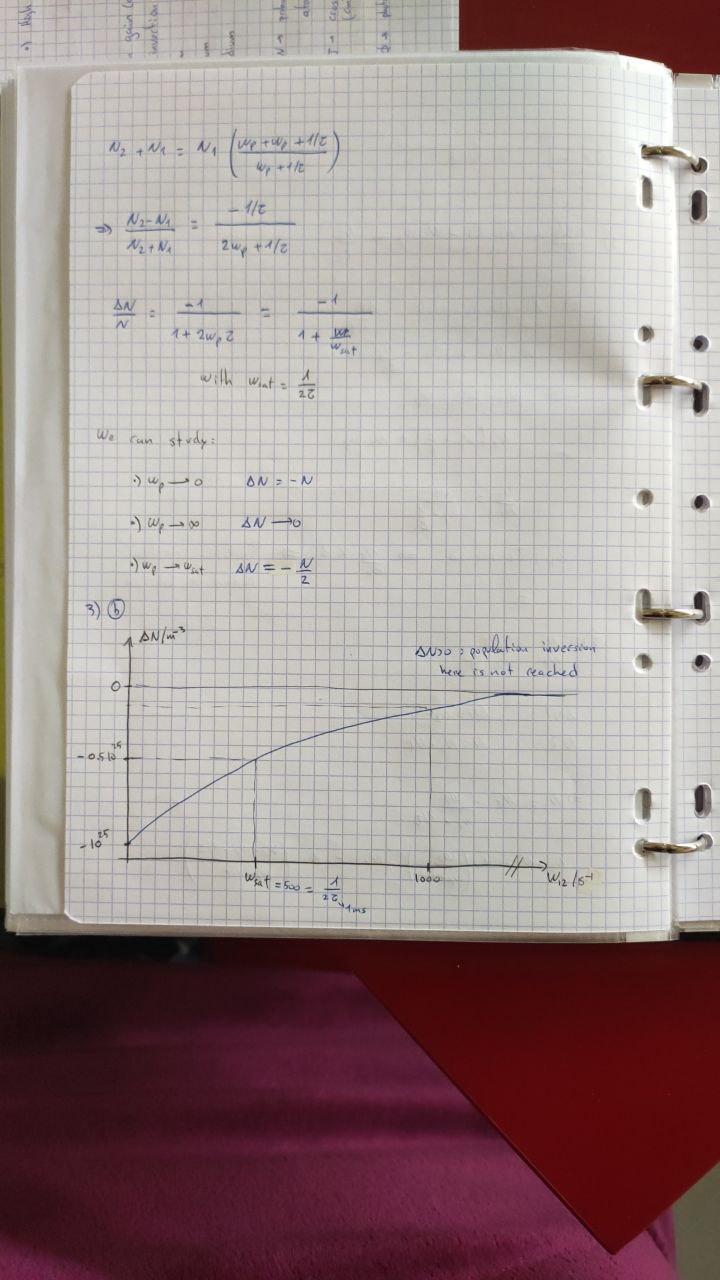 N₂ + N₁ = N₁ ( (wₚ + wₚ + 1/τ) / (wₚ + 1/τ) )
=> (N₂ - N₁) / (N₂ + N₁) = (-1/τ) / (2wₚ + 1/τ)
ΔN / N = -1 / (1 + 2wₚτ) = -1 / (1 + wₚ/w_sat)
with w_sat = 1 / 2τ
We can study:
•) wₚ → 0 ΔN = -N
•) wₚ → ∞ ΔN → 0
•) wₚ → w_sat ΔN = - N/2
3) b
ΔN/m⁻³
ΔN>0 : population inversion
here is not reached
0
-0.5 10²⁵
-10²⁵
w_sat = 500 = 1 / 2τ → 1ms
1000
W₁₂ / s⁻¹
•) High
gain
inversion
N →
I →
Φ →